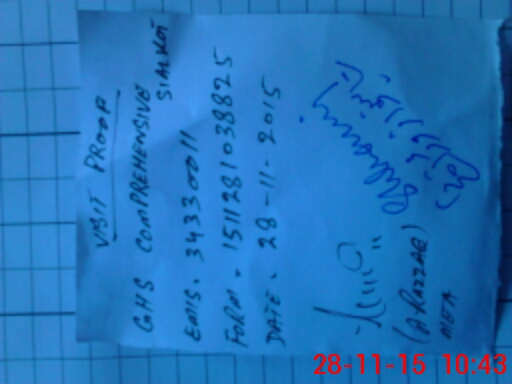 VISIT PROOF
GHS COMPREHENSIVE
SIALKOT
EMIS. 34330011
FORM. 1511281038825
DATE. 28-11-2015
(A.RAZZAQ)
MEA
28-11-15 10:43